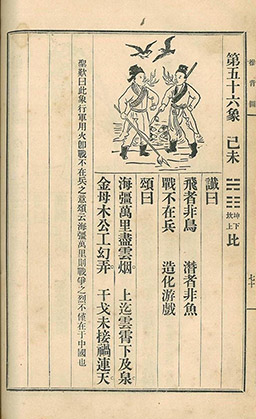 推背圖
七十
第五十六象 己未
坤下
坎上
比
讖曰
飛者非鳥 潛者非魚
戰不在兵 造化游戲
頌曰
海疆萬里盡雲烟 上迄雲霄下及泉
金母木公工幻弄 干戈未接禍連天
聖歎曰此象行軍用火即戰不在兵之意頌云海疆萬里則戰爭之烈不僅在于中國也